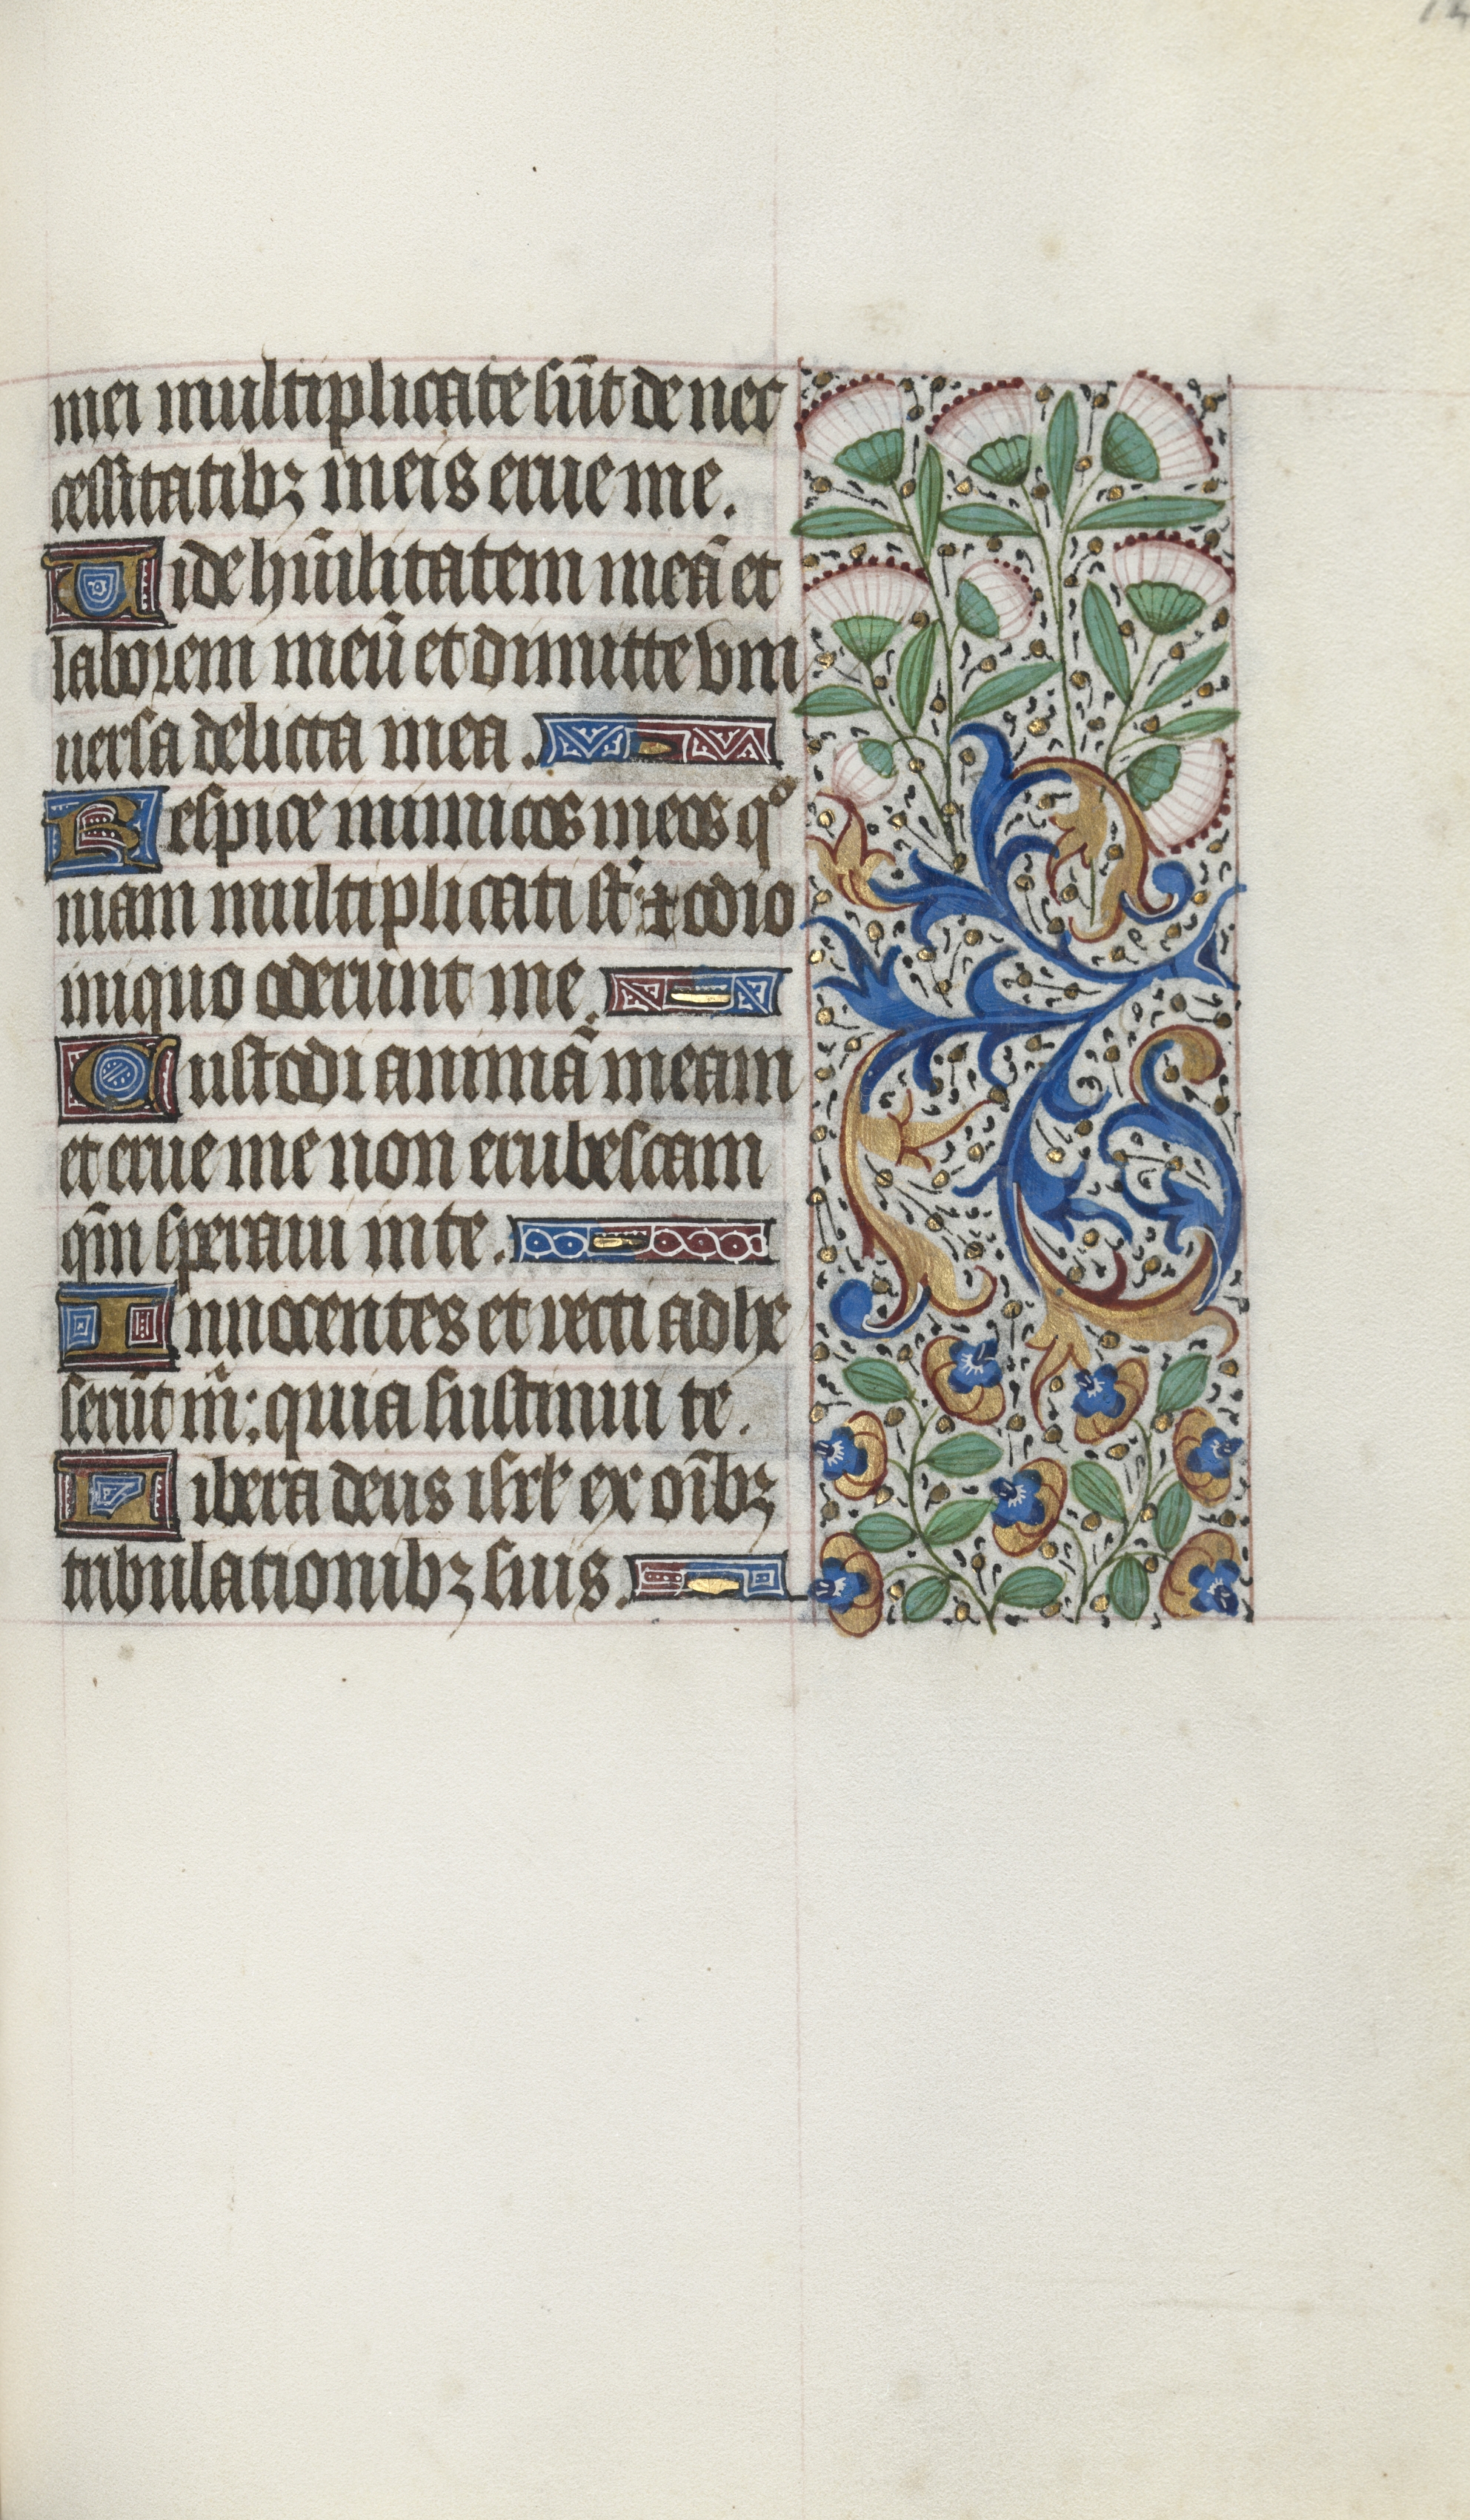 mei multiplicate sūt de nec
cessitatibꝫ meis erue me.
Vide hūilitatem meā et
laborem meū et dimitte vni
uersa delicta mea.
Respice inimicos meos qº
niam multiplicati sūt: ⁊ odio
iniquo oderunt me.
Custodi animā meam
et erue me non erubescam
qm̄ speraui in te.
Innocentes et recti adhe
serūt m̄: quia sustinui te.
Libera deus isrl̄ ex oībꝫ
tribulationibꝫ suis.